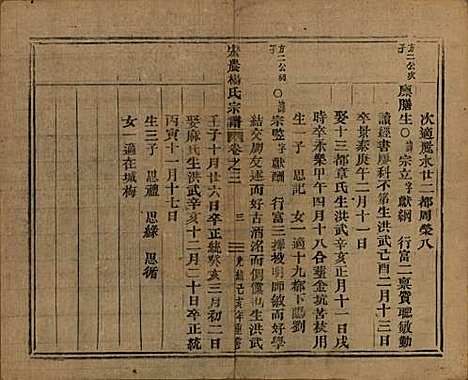 次適鳳水廿二都周榮八
方二公次子
廩膳生○諱宗立字獻綱 行富二稟質聰敏勤
讀經書廖科不第生洪武己酉二月十三日
卒景泰庚午二月十一日
娶十三都章氏生洪武辛亥正月十一日戌
時卒永樂甲午四月十八合葬金坑苦枝用
生一子 思記 女一適十九都下陽劉
方二公 子○諱宗 字獻酬 行富三揮被明師敏而好學
結交朋友述而好古酒 而倜儻 生洪武
宏農楊氏宗譜 卷之二 三 光緒己亥年重修
壬子十月廿六日卒正統癸亥三月初二日
娶麻氏生洪武辛亥十二月二十日卒正統
丙寅十一月十七日
生三子 思禮 思緣 思循
女一適在城梅